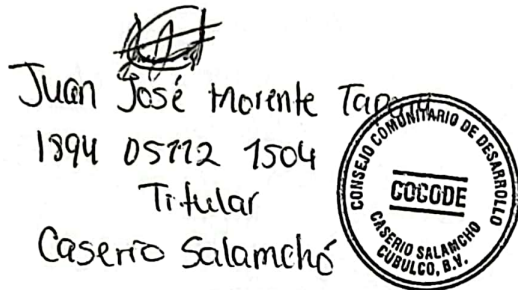 Juan José Morente
1894 05112 1504
Titular
Caserío Salamchó
CONSEJO COMUNITARIO DE DESARROLLO
COCODE
CASERIO SALAMCHO
CUBULCO, B.V.